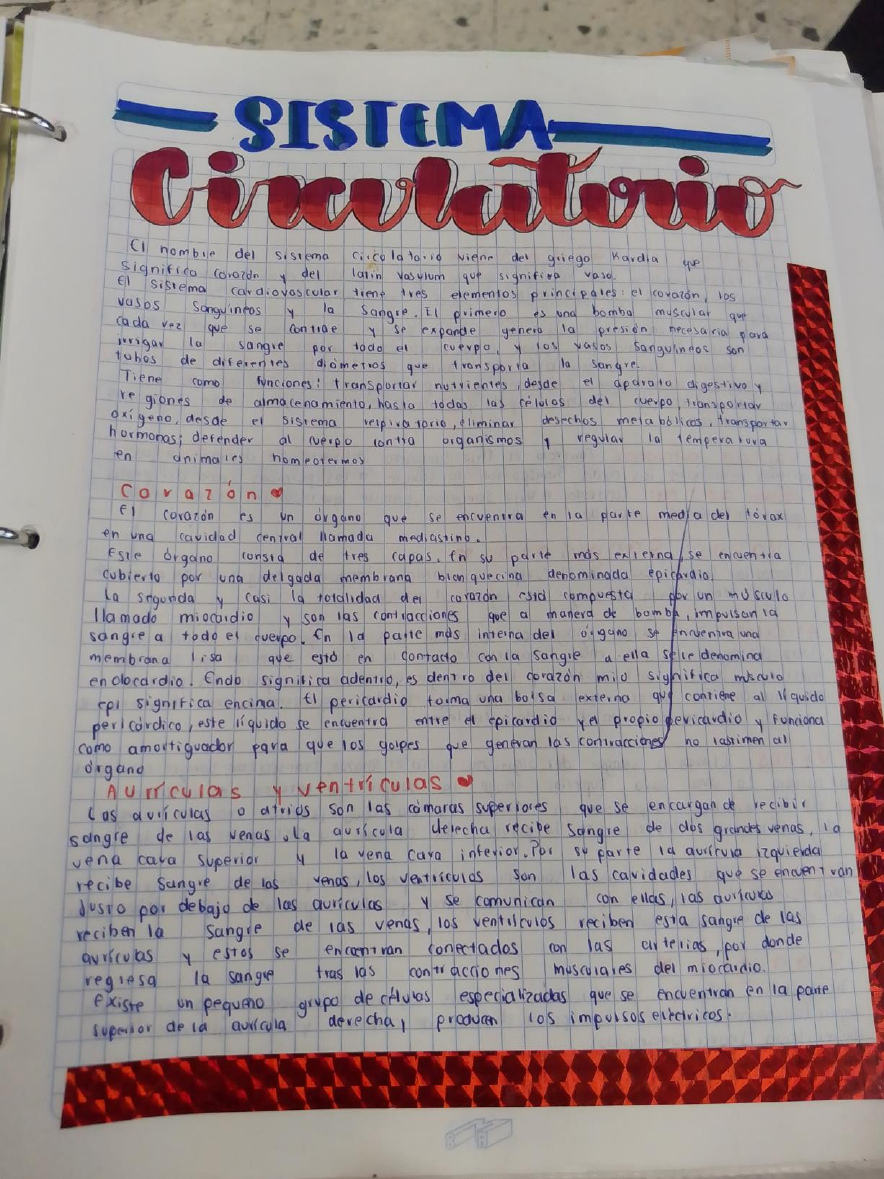 SISTEMA
Circulatorio
El nombre del sistema circolatorio viene del griego Kardia que
significa corazón y del latín vasculum que significa vaso.
El sistema cardiovascular tiene tres elementos principales: el corazón, los
vasos sanguíneos y la sangre. El primero es una bomba muscular que
cada vez que se contrae y se expande genera la presión necesaria para
irrigar la sangre por todo el cuerpo, y los vasos sanguíneos son
tubos de diferentes diámetros que transporta la sangre.
Tiene como funciones: transportar nutrientes, desde el aparato digestivo y
regiones de almacenamiento, hasta todas las células del cuerpo, transportar
oxígeno, desde el sistema respiratorio, eliminar desechos metabólicos, transportar
hormonas; defender al cuerpo contra organismos y regular la temperatura
en animales homeotermos
Corazón
El corazón es un órgano que se encuentra en la parte media del tórax
en una cavidad central llamada mediastino.
Este órgano consta de tres capas. En su parte más externa se encuentra
cubierto por una delgada membrana blanquecina denominada epicardio
la segunda y casi la totalidad del corazón está compuesta por un músculo
llamado miocardio y son las contracciones que a manera de bomba, impulsan la
sangre a todo el cuerpo. En la parte más interna del órgano se encuentra una
membrana lisa que está en contacto con la sangre a ella se le denomina
endocardio. Endo significa adentro, es dentro del corazón mio significa músculo
epi significa encima. El pericardio forma una bolsa externa que contiene al líquido
pericárdico, este líquido se encuentra entre el epicardio y el propio pericardio y funciona
como amortiguador para que los golpes que generan las contracciones no lastimen al
órgano
Aurículas y ventrículas
Las aurículas o atrios son las cámaras superiores que se encargan de recibir
sangre de las venas, la aurícula derecha recibe sangre de dos grandes venas, la
vena cava superior y la vena cava inferior. Por su parte la aurícula izquierda
recibe sangre de las venas, los ventrículos son las cavidades que se encuentran
justo por debajo de las aurículas y se comunican con ellas, las aurículas
reciben la sangre de las venas, los ventrículos reciben esta sangre de las
aurículas y estos se encontran conectados con las arterias, por donde
regresa la sangre tras las contracciones musculares del miocardio.
Existe un pequeño grupo de células especializadas que se encuentran en la parte
superior de la aurícula derecha, producen los impulsos eléctricos.